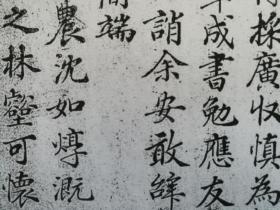 採廣收慎為
成書勉應友
誚余安敢辭
簡端
農沈如惇溉
之林壑可懷